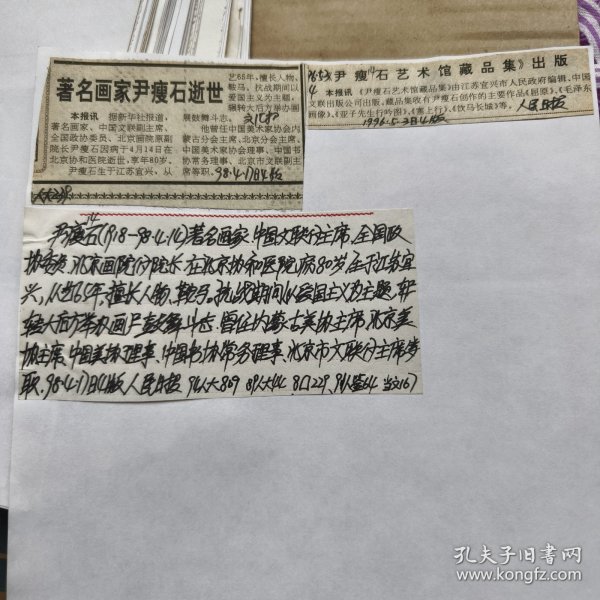 著名画家尹瘦石逝世
本报讯 据新华社报道,
著名画家、中国文联副主席、
全国政协委员、北京画院原副
院长尹瘦石因病于4月14日在
北京协和医院逝世,享年80岁。
尹瘦石生于江苏宜兴、从
艺65年,擅长人物、
鞍马。抗战期间以
爱国主义为主题,
辗转大后方举办画
展鼓舞斗志。
他曾任中国美术家协会内
蒙古分会主席、北京分会主席、
中国美术家协会理事、中国书
协常务理事、北京市文联副主
席等职。 98·4·17日4版
《尹瘦石艺术馆藏品集》出版
本报讯 《尹瘦石艺术馆藏品集》由江苏宜兴市人民政府编辑,中国
文联出版公司出版。藏品集收有尹瘦石创作的主要作品《屈原》、《毛泽东
画像》、《亚子先生行吟图》、《塞上行》、《饮马长城》等。 人民日报
尹瘦石(1918-98·4·14)著名画家.中国文联付主席.全国政
协委员.北京画院付院长.在北京协和医院病80岁.生于江苏宜
兴,从艺65年,擅长人物、鞍马。抗战期间以爱国主义为主题,辗
转大后方举办画展鼓舞斗志.曾任内蒙古美协主席,北京美
协主席、中国美协理事、中国书协常务理事、北京市文联付主席等
职.98·4·17日4版人民日报
孔夫子旧书网
www.kongfz.com